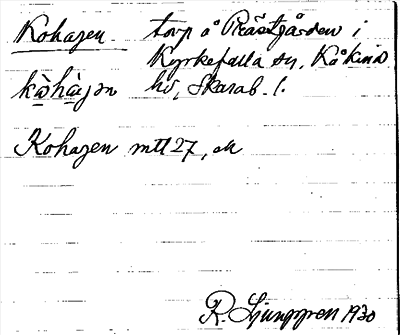 Kohagen torp å Prästgården i
Kyrkefalla sn, Kåkinds
kòhàgən hd, Skarab. l.
Kohagen mtl 27, ch
R. Ljunggren 1930